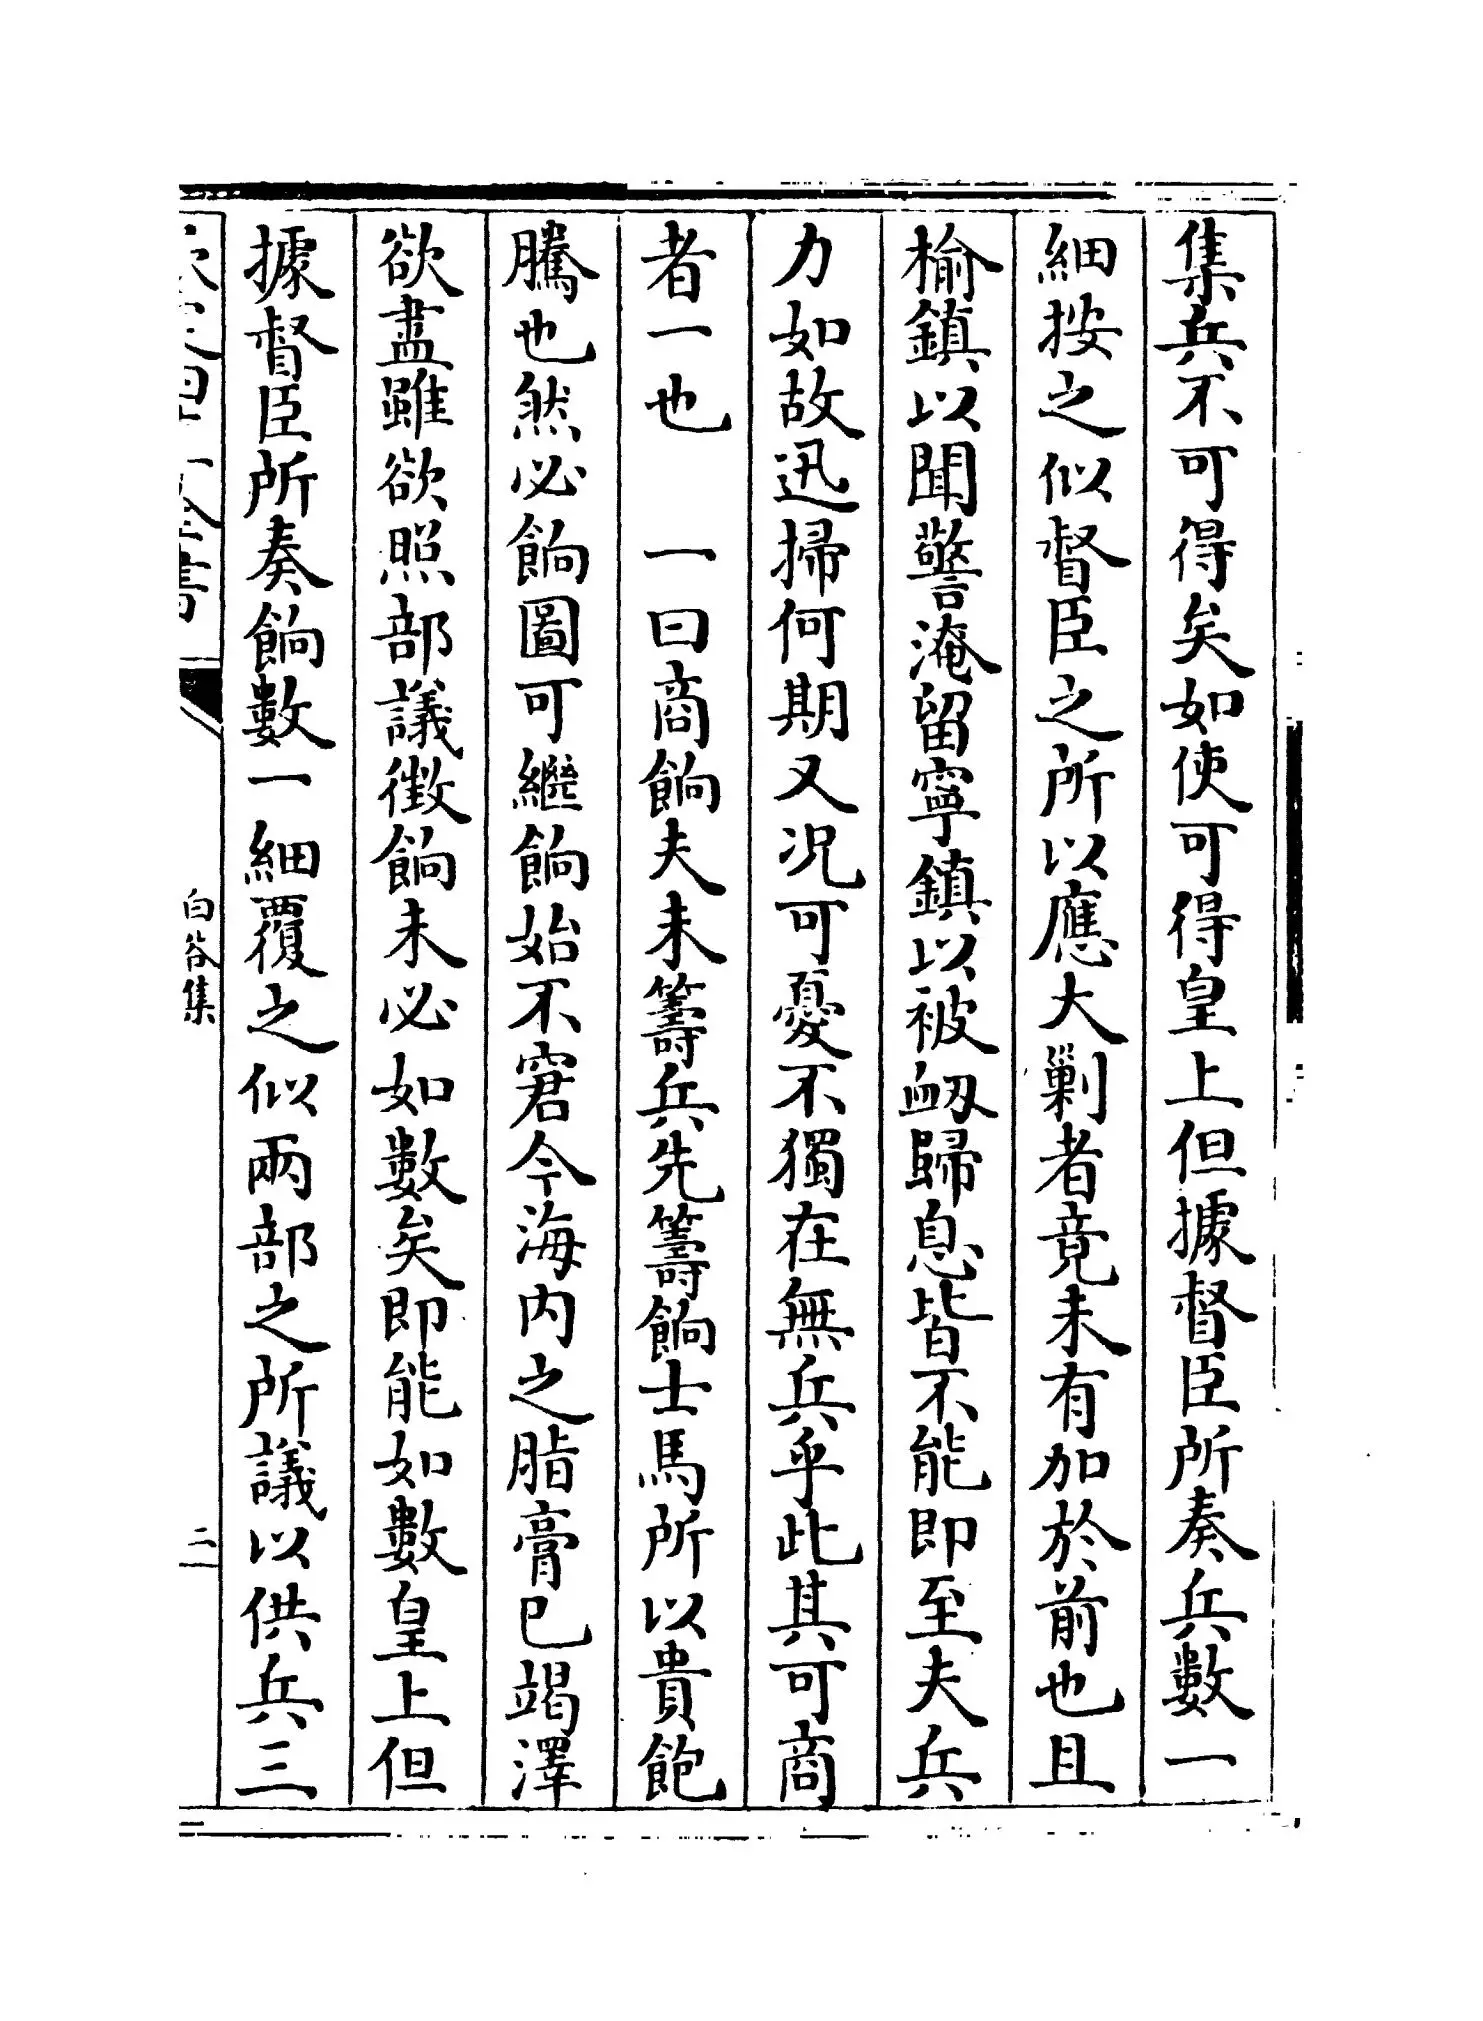 集兵不可得矣如使可得皇上但據督臣所奏兵數一
細按之似督臣之所以應大剿者竟未有加於前也且
榆鎮以聞警淹留寧鎮以被衂歸息皆不能即至夫兵
力如故迅掃何期又况可憂不獨在無兵乎此其可商
者一也　一曰商餉夫未籌兵先籌餉士馬所以貴飽
騰也然必餉圖可繼餉始不窘今海内之脂膏已竭澤
欲盡雖欲照部議徵餉未必如數矣即能如數皇上但
據督臣所奏餉數一細覆之似兩部之所議以供兵三
欽定四庫全書
白谷集
二